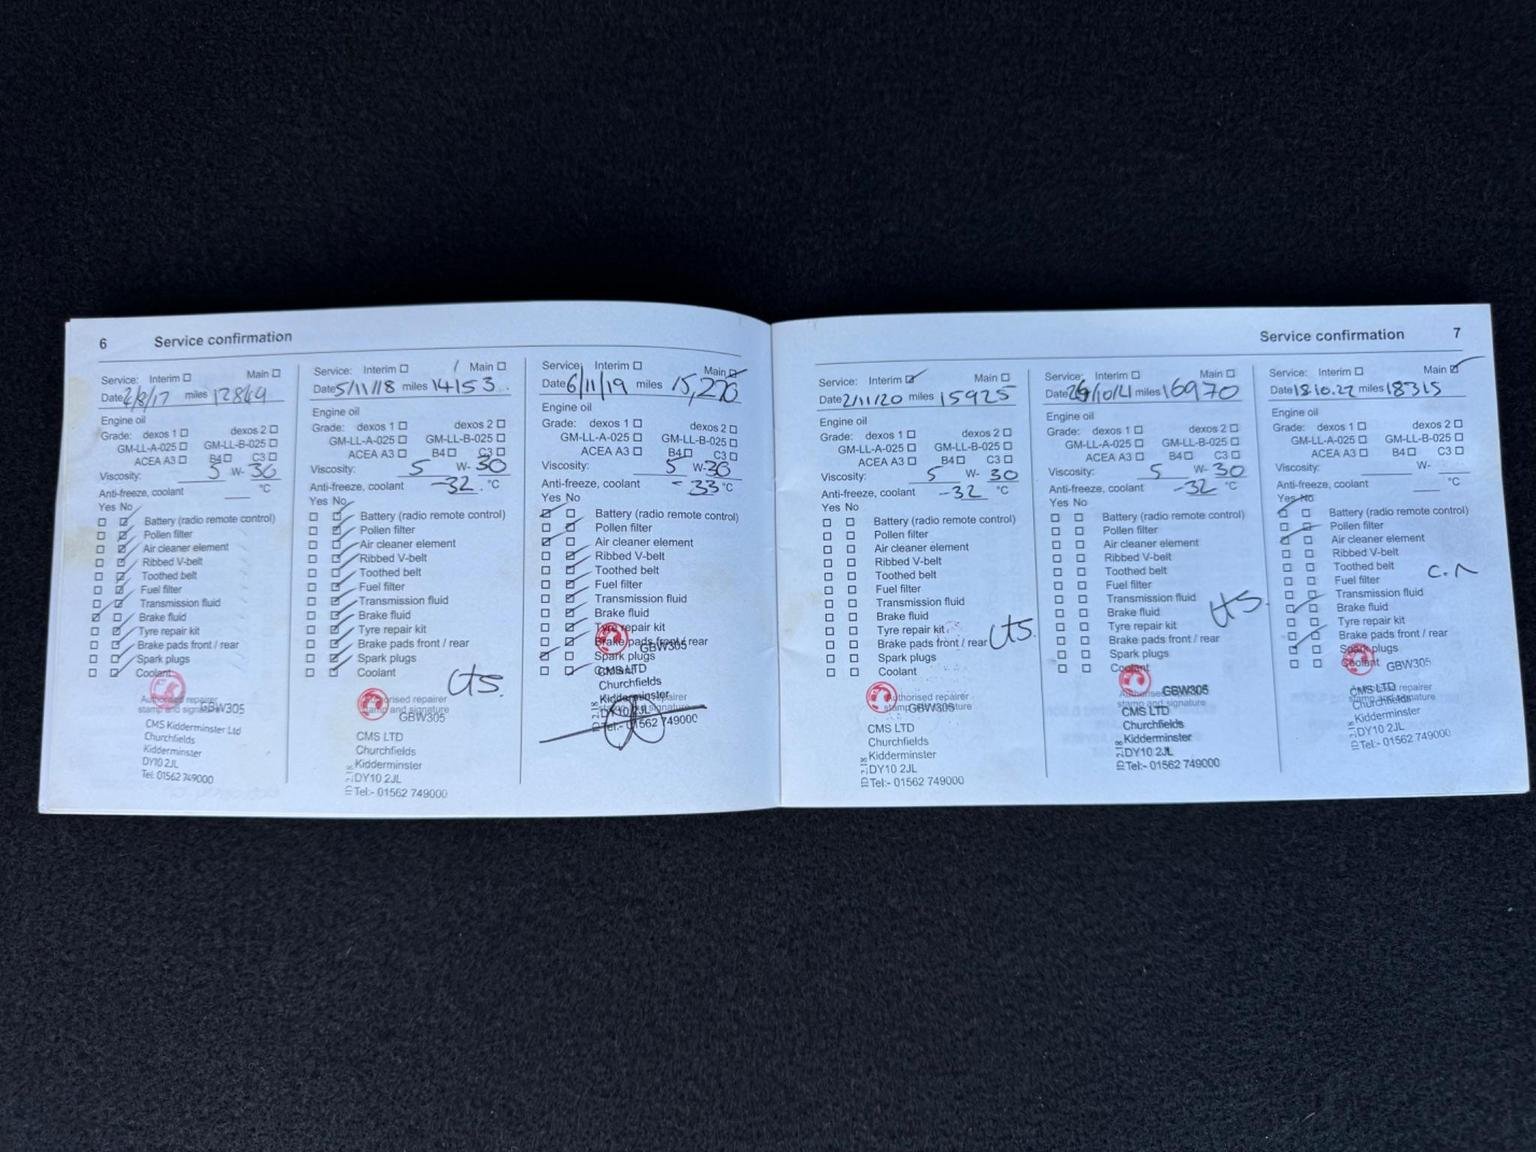 6 Service confirmation
Service: Interim ☐ Main ☐
Date 2/8/17 miles 12869
Engine oil
Grade: dexos 1 ☐ dexos 2 ☐
GM-LL-A-025 ☐ GM-LL-B-025 ☐
ACEA A3 ☐ B4 ☐ C3 ☐
Viscosity: 5 W- 30
Anti-freeze, coolant °C
Yes No
Battery (radio remote control)
Pollen filter
Air cleaner element
Ribbed V-belt
Toothed belt
Fuel filter
Transmission fluid
Brake fluid
Tyre repair kit
Brake pads front / rear
Spark plugs
Coolant
Authorised repairer
stamp and signature
GBW305
CMS Kidderminster Ltd
Churchfields
Kidderminster
DY10 2JL
Tel: 01562 749000
Service: Interim ☐ Main ☐
Date 5/11/18 miles 14153
Engine oil
Grade: dexos 1 ☐ dexos 2 ☐
GM-LL-A-025 ☐ GM-LL-B-025 ☐
ACEA A3 ☐ B4 ☐ C3 ☐
Viscosity: 5 W- 30
Anti-freeze, coolant -32 °C
Yes No
Battery (radio remote control)
Pollen filter
Air cleaner element
Ribbed V-belt
Toothed belt
Fuel filter
Transmission fluid
Brake fluid
Tyre repair kit
Brake pads front / rear
Spark plugs
Coolant
Authorised repairer
stamp and signature
GBW305
CMS LTD
Churchfields
Kidderminster
DY10 2JL
Tel:- 01562 749000
Service: Interim ☐ Main ☑
Date 6/11/19 miles 15,276
Engine oil
Grade: dexos 1 ☐ dexos 2 ☐
GM-LL-A-025 ☐ GM-LL-B-025 ☐
ACEA A3 ☐ B4 ☐ C3 ☐
Viscosity: 5 W- 30
Anti-freeze, coolant -33 °C
Yes No
Battery (radio remote control)
Pollen filter
Air cleaner element
Ribbed V-belt
Toothed belt
Fuel filter
Transmission fluid
Brake fluid
Tyre repair kit
Brake pads front / rear
GBW305
Spark plugs
Coolant
CMS LTD
Churchfields
Kidderminster
DY10 2JL
Tel:- 01562 749000
Service confirmation 7
Service: Interim ☑ Main ☐
Date 2/11/20 miles 15925
Engine oil
Grade: dexos 1 ☐ dexos 2 ☐
GM-LL-A-025 ☐ GM-LL-B-025 ☐
ACEA A3 ☐ B4 ☐ C3 ☐
Viscosity: 5 W- 30
Anti-freeze, coolant -32 °C
Yes No
Battery (radio remote control)
Pollen filter
Air cleaner element
Ribbed V-belt
Toothed belt
Fuel filter
Transmission fluid
Brake fluid
Tyre repair kit
Brake pads front / rear
Spark plugs
Coolant
Authorised repairer
stamp and signature
GBW305
CMS LTD
Churchfields
Kidderminster
DY10 2JL
Tel:- 01562 749000
Service: Interim ☐ Main ☐
Date 26/10/21 miles 16970
Engine oil
Grade: dexos 1 ☐ dexos 2 ☐
GM-LL-A-025 ☐ GM-LL-B-025 ☐
ACEA A3 ☐ B4 ☐ C3 ☐
Viscosity: 5 W- 30
Anti-freeze, coolant -32 °C
Yes No
Battery (radio remote control)
Pollen filter
Air cleaner element
Ribbed V-belt
Toothed belt
Fuel filter
Transmission fluid
Brake fluid
Tyre repair kit
Brake pads front / rear
Spark plugs
Coolant
Authorised
stamp and signature
GBW305
CMS LTD
Churchfields
Kidderminster
DY10 2JL
Tel:- 01562 749000
Service: Interim ☐ Main ☑
Date 18.10.22 miles 18315
Engine oil
Grade: dexos 1 ☐ dexos 2 ☐
GM-LL-A-025 ☐ GM-LL-B-025 ☐
ACEA A3 ☐ B4 ☐ C3 ☐
Viscosity: W-
Anti-freeze, coolant °C
Yes No
Battery (radio remote control)
Pollen filter
Air cleaner element
Ribbed V-belt
Toothed belt
Fuel filter
Transmission fluid
Brake fluid
Tyre repair kit
Brake pads front / rear
Spark plugs
Coolant
GBW305
CMS LTD
Churchfields
Kidderminster
DY10 2JL
Tel:- 01562 749000